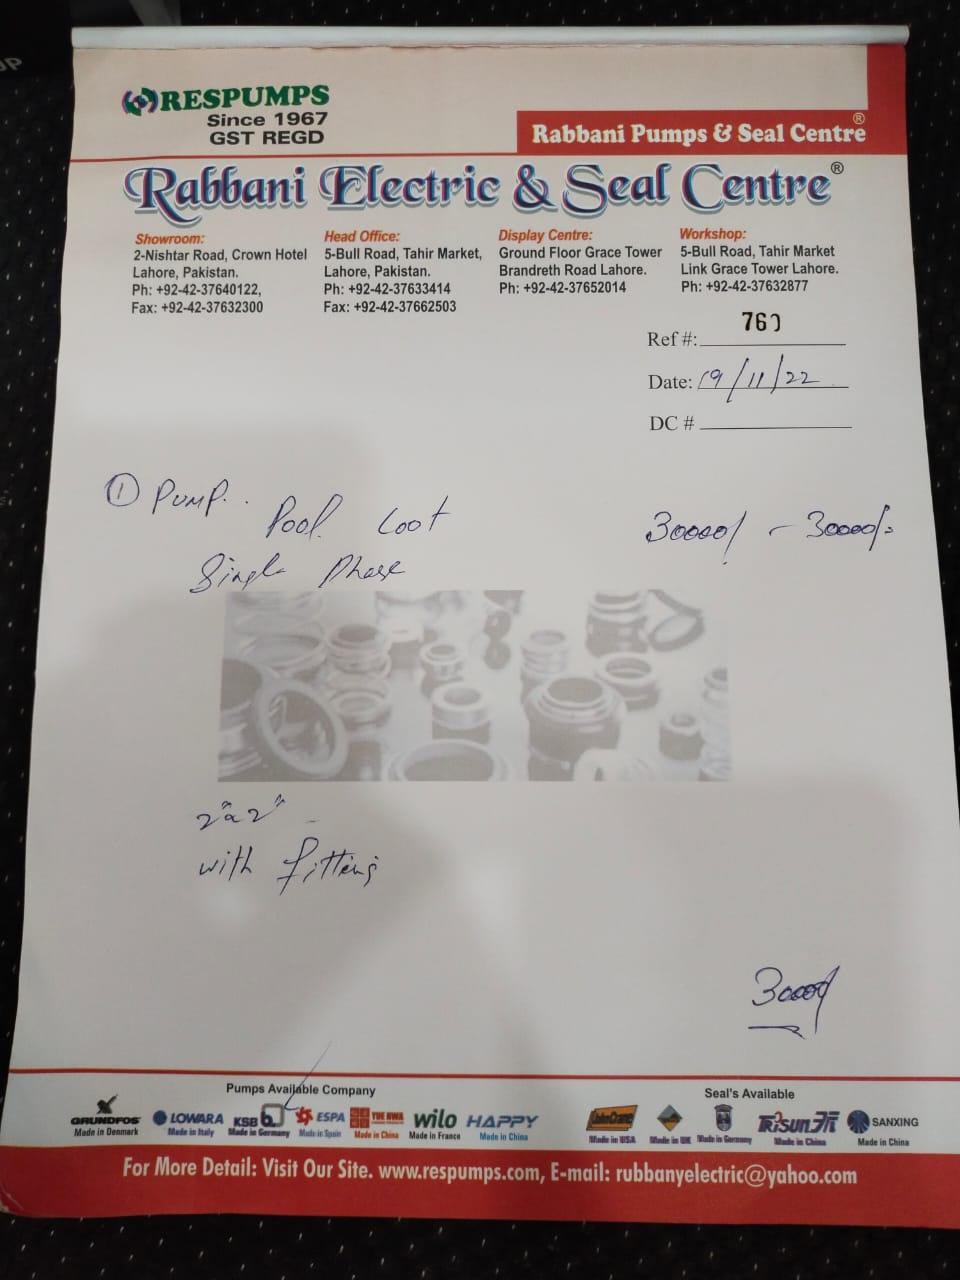 RESPUMPS
Since 1967
GST REGD
Rabbani Pumps & Seal Centre®
Rabbani Electric & Seal Centre®
Showroom:
2-Nishtar Road, Crown Hotel
Lahore, Pakistan.
Ph: +92-42-37640122,
Fax: +92-42-37632300
Head Office:
5-Bull Road, Tahir Market,
Lahore, Pakistan.
Ph: +92-42-37633414
Fax: +92-42-37662503
Display Centre:
Ground Floor Grace Tower
Brandreth Road Lahore.
Ph: +92-42-37652014
Workshop:
5-Bull Road, Tahir Market
Link Grace Tower Lahore.
Ph: +92-42-37632877
Ref #:
Date: 19/11/22
DC #
① PUMP.
Pool
30000/ - 30000/-
Single Phase
with fitting
30000/
Pumps Available Company
Seal's Available
GRUNDFOS
Made in Denmark
LOWARA
Made in Italy
KSB
Made in Germany
ESPA
Made in Spain
Made in China
wilo
Made in France
HAPPY
Made in China
Made in USA
Made in UK
Made in Germany
Made in China
SANXING
Made in China
For More Detail: Visit Our Site. www.respumps.com, E-mail: rubbanyelectric@yahoo.com